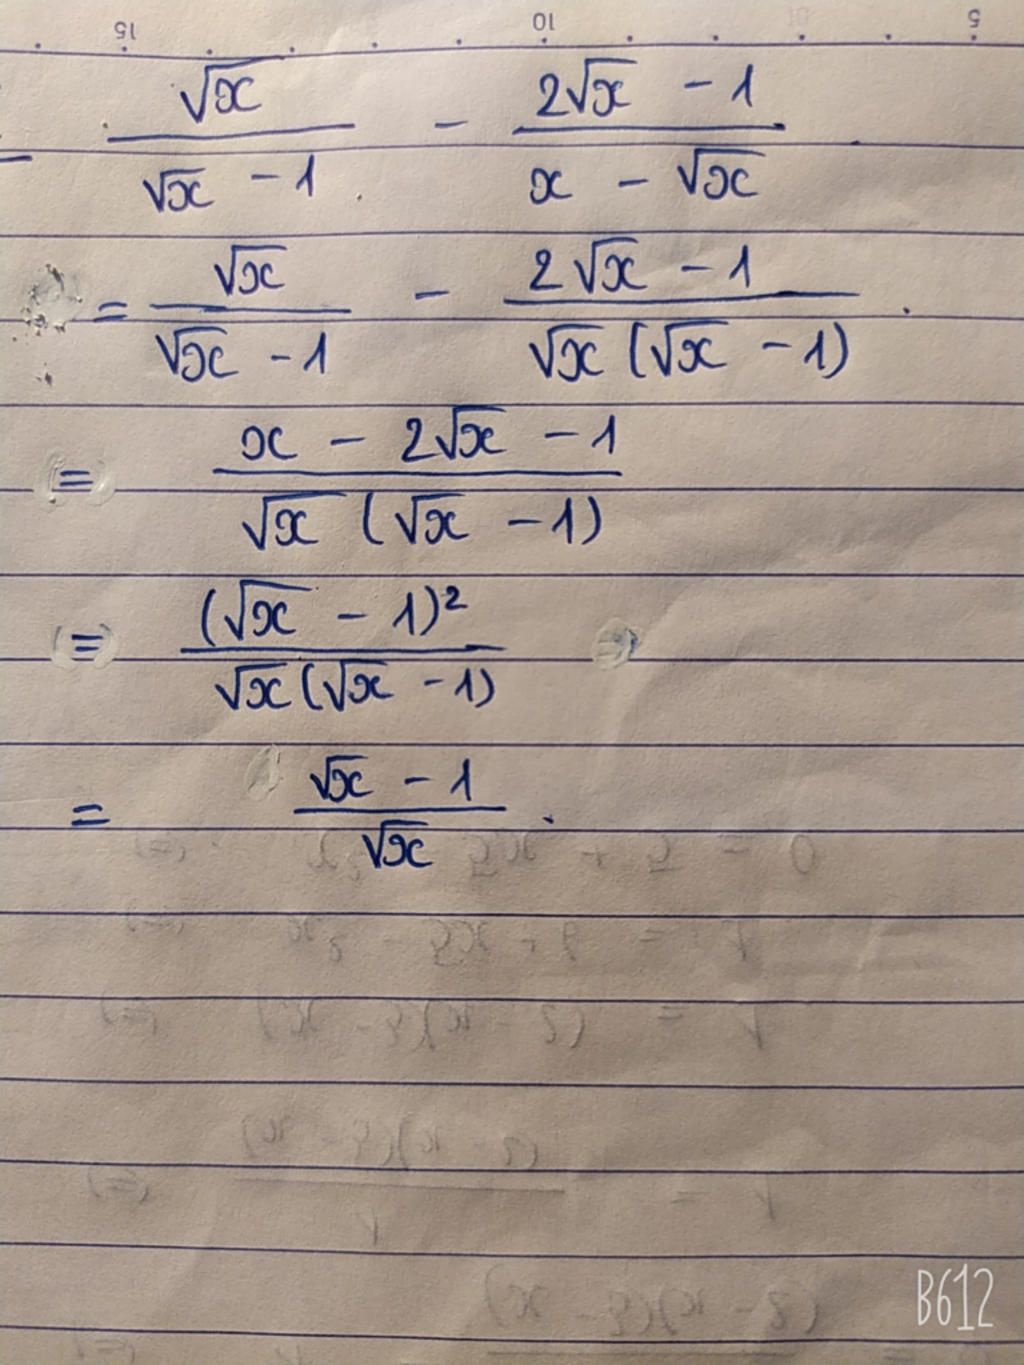 15 10 5
√x / (√x - 1) - (2√x - 1) / (x - √x)
= √x / (√x - 1) - (2√x - 1) / (√x(√x - 1)).
= (x - 2√x - 1) / (√x(√x - 1))
= (√x - 1)² / (√x(√x - 1))
= (√x - 1) / √x.
B612